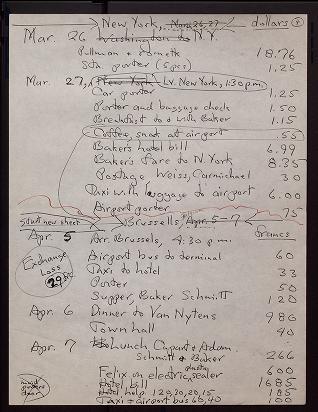 New York, Mar. 26, 27 dollars
Mar. 26 Washington to N.Y.
Pullman + 18.76
Sta. porter (5 pcs) 1.25
Mar. 27, New York Lv. New York, 1:30 p.m.
Car porter 1.25
Porter and baggage check 1.50
Breakfast with Baker 1.15
Coffee, snack at airport .55
Baker's hotel bill 6.99
Baker's fare to N. York 8.35
Postage Weiss, Carmichael 30
Taxi with luggage to airport 6.00
Airport porter 75
Start new sheet Brussells, Apr. 5-7 francs
Apr. 5 Arr. Brussels, 4:30 p.m.
Exchange Loss
Airport bus to terminal 60
Taxi to hotel 33
Porter 50
Supper, Baker Schmitt 120
Apr. 6 Dinner to Van Nytens 980
Town hall 40
Apr. 7 Lunch + Adam.
Schmitt + Baker 266
Felix on electric sealer 600
Hotel bill 1685
Hotel help 120, 30, 20, 15 185
Taxi + airport bus 60, 40 100